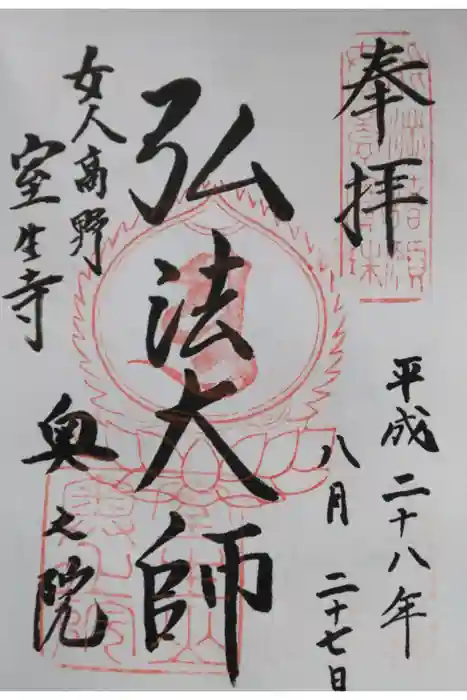 奉拝
平成二十八年
八月二十七日
弘法大師
女人高野
室生寺
奥之院